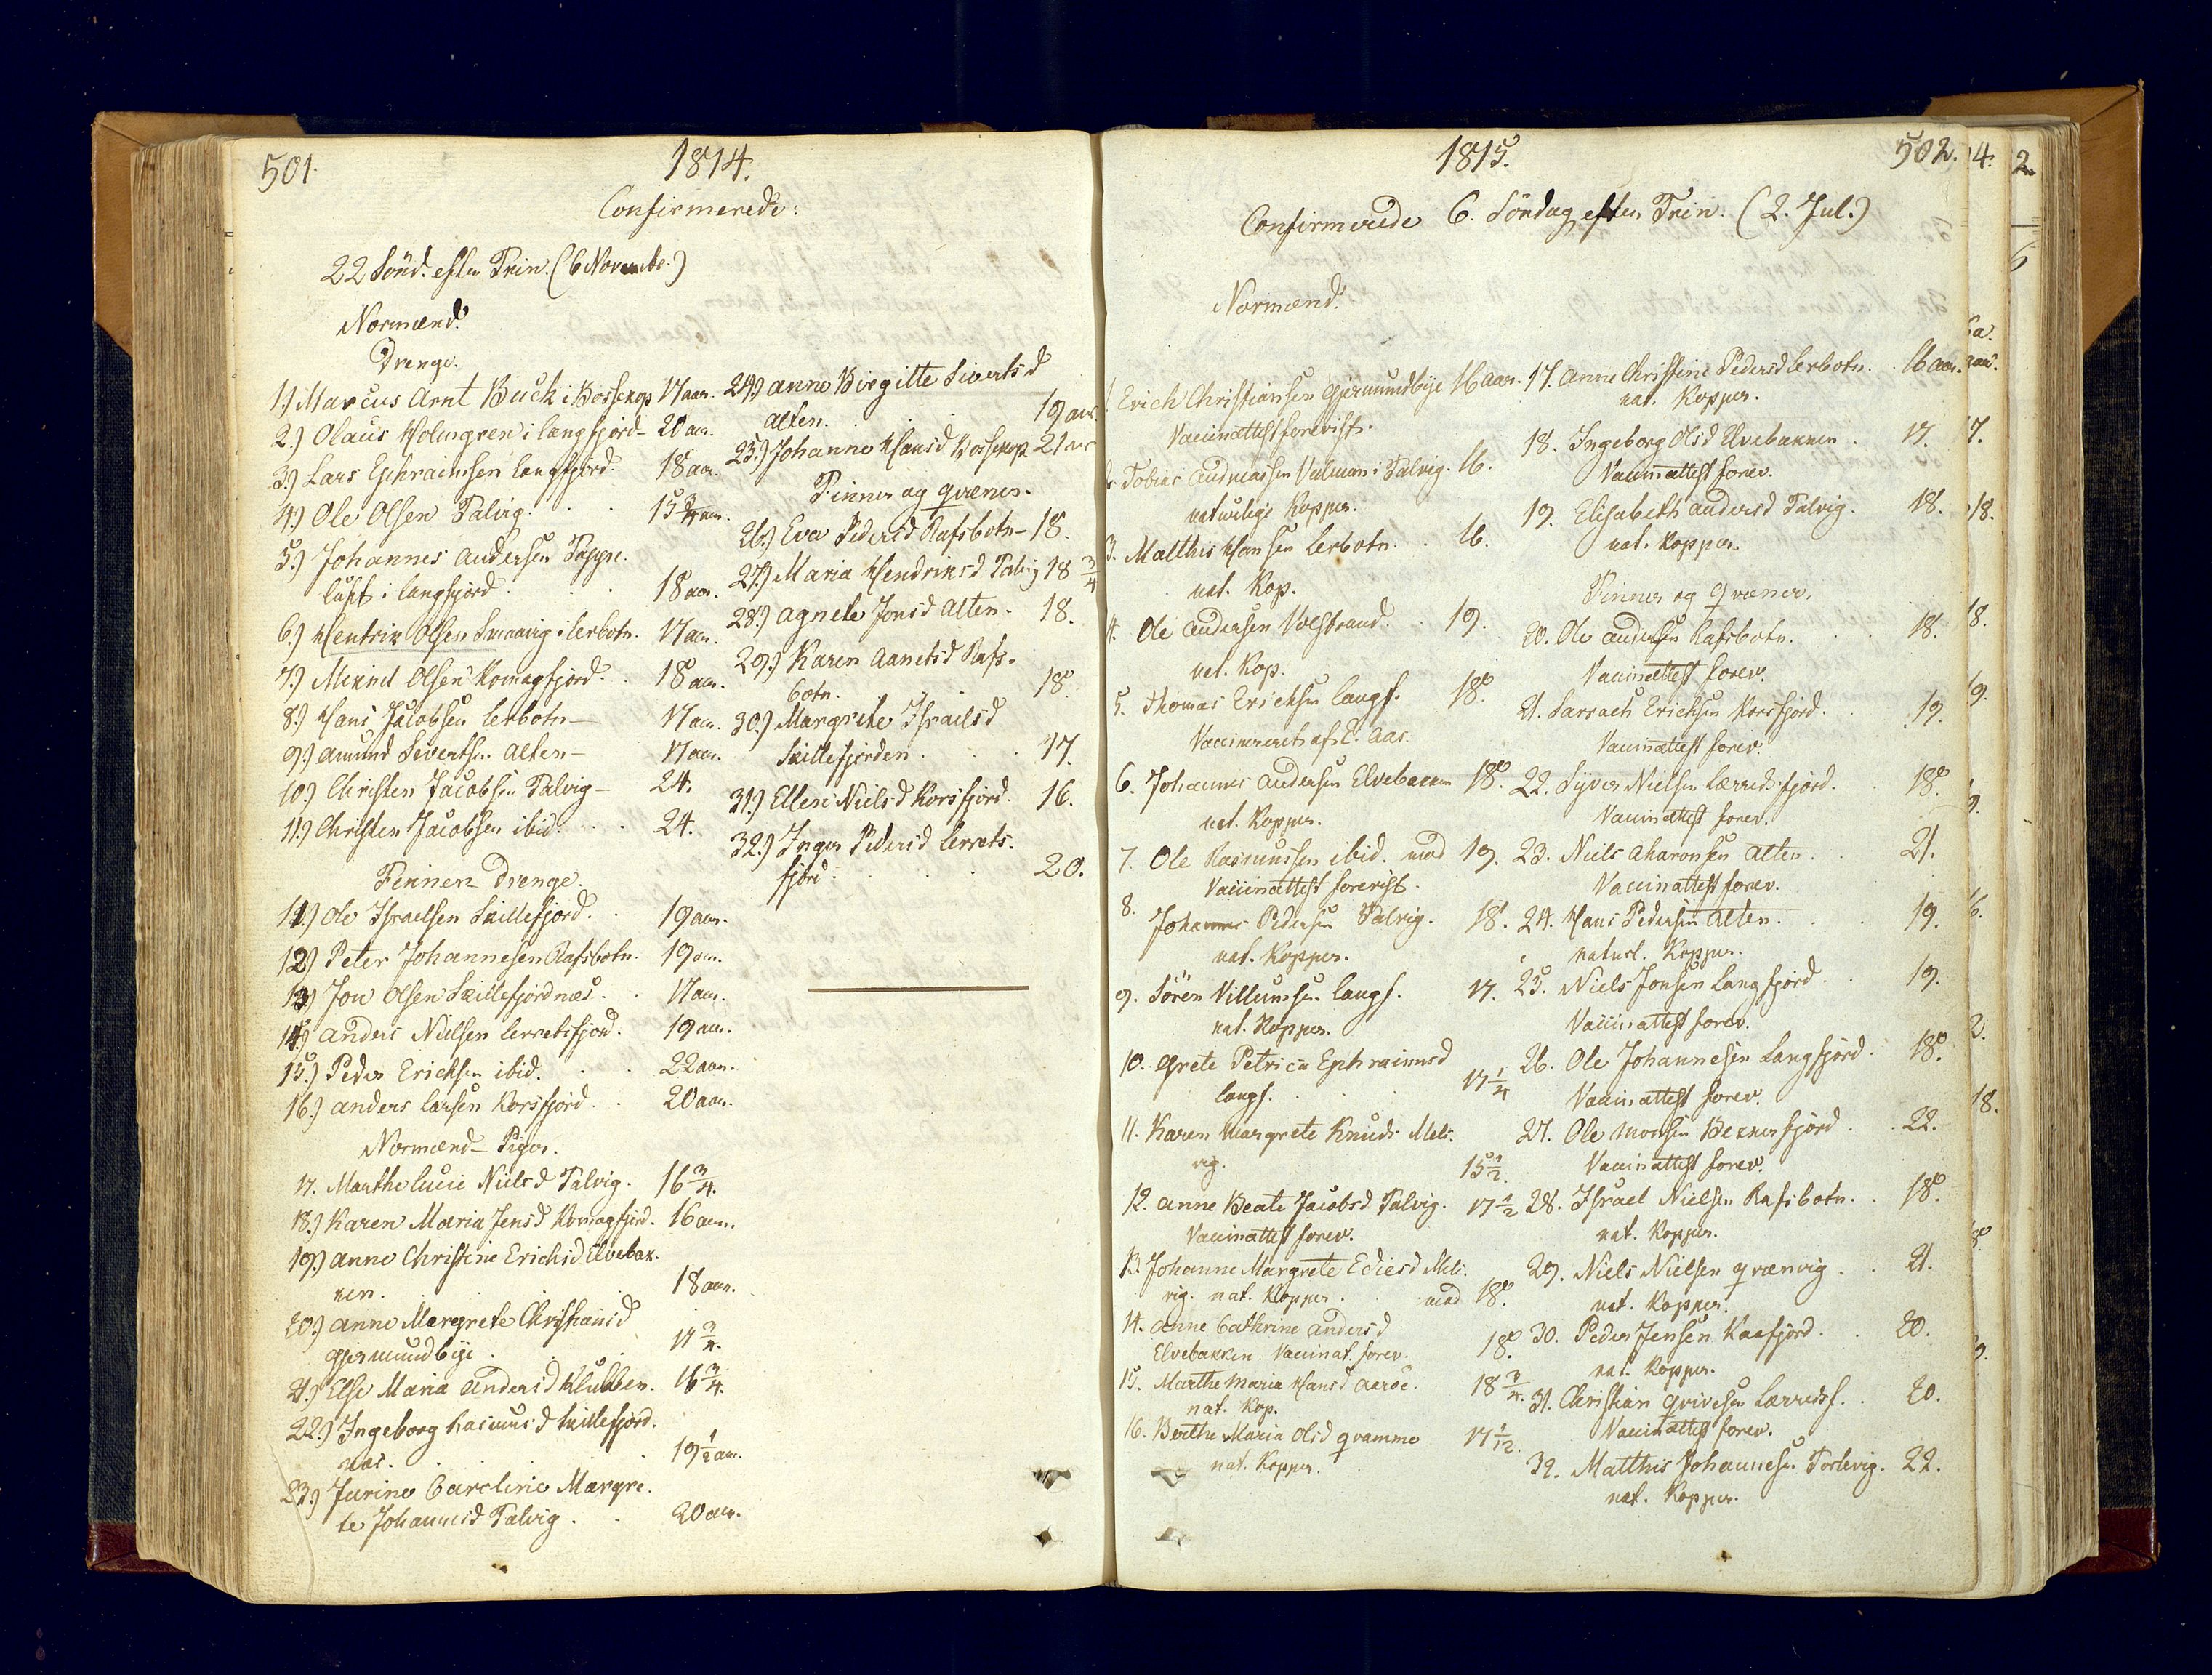 501.
1814.
Confirmerede:
22 Sönd. efter Trin. (6 Novembr.)
Normænd.
Drenge.
1.) Marcus Arnt Buck i Bossekop 17 aar.
2.) Olaus Holmgren i langfjord - 20 aar.
3.) Lars Ephraimsen langfjord. 18 aar.
4.) Ole Olsen Talvig. 15 3/4 aar.
5.) Johannes Andersen Tappe-
luft i langfjord. 18 aar.
6.) Hendrik Olsen Smaavig i lerbotn. 17 aar.
7.) Mikkel Olsen Komagfjord. 18 aar.
8.) Hans Jacobsen lerbotn - 17 aar.
9.) Amund Sivertsen Alten - 17 aar.
10.) Christen Jacobsen Talvig - 24.
11.) Christen Jacobsen ibid. 24.
Finner Drenge.
11.) Ole Israelsen Skillefjord. 19 aar.
12.) Peter Johannesen Rafsbotn. 19 aar.
13.) Jon Olsen Skillefjordnæs. 17 aar.
14.) Anders Nielsen lerretsfjord. 19 aar.
15.) Peder Ericksen ibid. 22 aar.
16.) Anders larsen Korsfjord. 20 aar.
Normænd - Piger.
17. Marthe lucie Nielsd Talvig. 16 3/4.
18.) Karen Maria Jensd Komagfjord. 16 aar.
19.) Anne Christine Erichsd Elvebak-
ken. 18 aar.
20.) Anne Margrete Christiansd
Gjermundbye. 17 3/4.
21.) Else Maria Andersd Klubben. 16 3/4.
22.) Ingeborg Rasmusd Skillefjord-
næs. 19 1/2 aar.
23.) Jurine Caroline Margre-
te Johannesd Talvig. 20 aar.
24.) Anne Birgitte Sivertsd
Alten. 19 aar
25.) Johanne Hansd Bossekop 21 aar
Finner og Qvæner.
26.) Eva Pedersd Rafsbotn - 18.
27.) Maria Hendriksd Talvig 18 3/4
28.) Agnete Jonsd Alten. 18.
29.) Karen Aanetsd Rafs-
botn. 18.
30.) Margrete Israelsd
Skillefjorden. 17.
31.) Ellen Nielsd Korsfjord. 16.
32.) Inger Pedersd lerrets-
fjord. 20.
1815.
502.
Confirmerede 6. Söndag efter Trin. (2. Jul.)
Normænd.
Erich Christiansen Gjermundbye 16 aar.
Vaccinattest forevist.
Tobias Andreassen Talvig. 16.
naturlige Kopper.
3. Matthis Hansen lerbotn. 16.
nat. Kop.
4. Ole Andersen Storstrand. 19.
nat. Kop.
5. Thomas Ericksen langf. 18.
Vaccineret af
6. Johannes Andersen Elvebakken 18.
nat. Kopper.
7. Ole Rasmussen ibid. med 19.
Vaccinattest forevist.
8. Johannes Pedersen Talvig. 18.
nat. Kopper.
9. Sören Villumsen langf. 17.
nat. Kopper.
10. Grete Petrica Ephraimsd
langf. 17 1/4
11. Karen Margrete Knuds Mels-
vig. 15 1/2.
12. Anne Beate Jacobsd Talvig. 17 1/2
Vaccinattest forev.
13. Johanne Margrete Ediesd Mels-
vig. nat. Kopper. med 18.
14. Anne Cathrine Andersd
Elvebakken. Vaccinat. forev. 18.
15. Marthe Maria Hansd Aaröe. 18 3/4.
nat. Kop.
16. Berthe Maria Olsd Qvamme 17 1/12.
nat. Kopper.
17. Anne Christine Pedersd lerbotn. 16 aar.
nat. Kopper.
18. Ingeborg Olsd Elvebakken. 17.
Vaccinattest forev.
19. Elisabeth Andersd Talvig. 18.
nat. Kopper.
Finner og Qvæner.
20. Ole Andersen Rafsbotn. 18.
Vaccinattest forev.
21. Sarrach Ericksen Korsfjord. 19.
Vaccinattest forev.
22. Syver Nielsen Lærredsfjord. 18.
Vaccinattest forev.
23. Niels Aharonsen Alten. 21.
Vaccinattest forev.
24. Hans Pedersen Alten. 19.
naturl. Kopper.
25. Niels Jonsen Langfjord. 19.
Vaccinattest forev.
26. Ole Johannesen Langfjord. 18.
Vaccinattest forev.
27. Ole Monsen Bekkerfjord. 22.
Vaccinattest forev.
28. Israel Nielsen Rafsbotn. 18.
nat. Kopper.
29. Niels Nielsen Qvænvig. 21.
nat. Kopper.
30. Peder Jensen Kaafjord. 20.
nat. Kopper.
31. Christian Qrivesen Lærredsf. 20.
Vaccinattest forev.
32. Matthis Johannesen Torlevig. 22.
nat. Kopper.